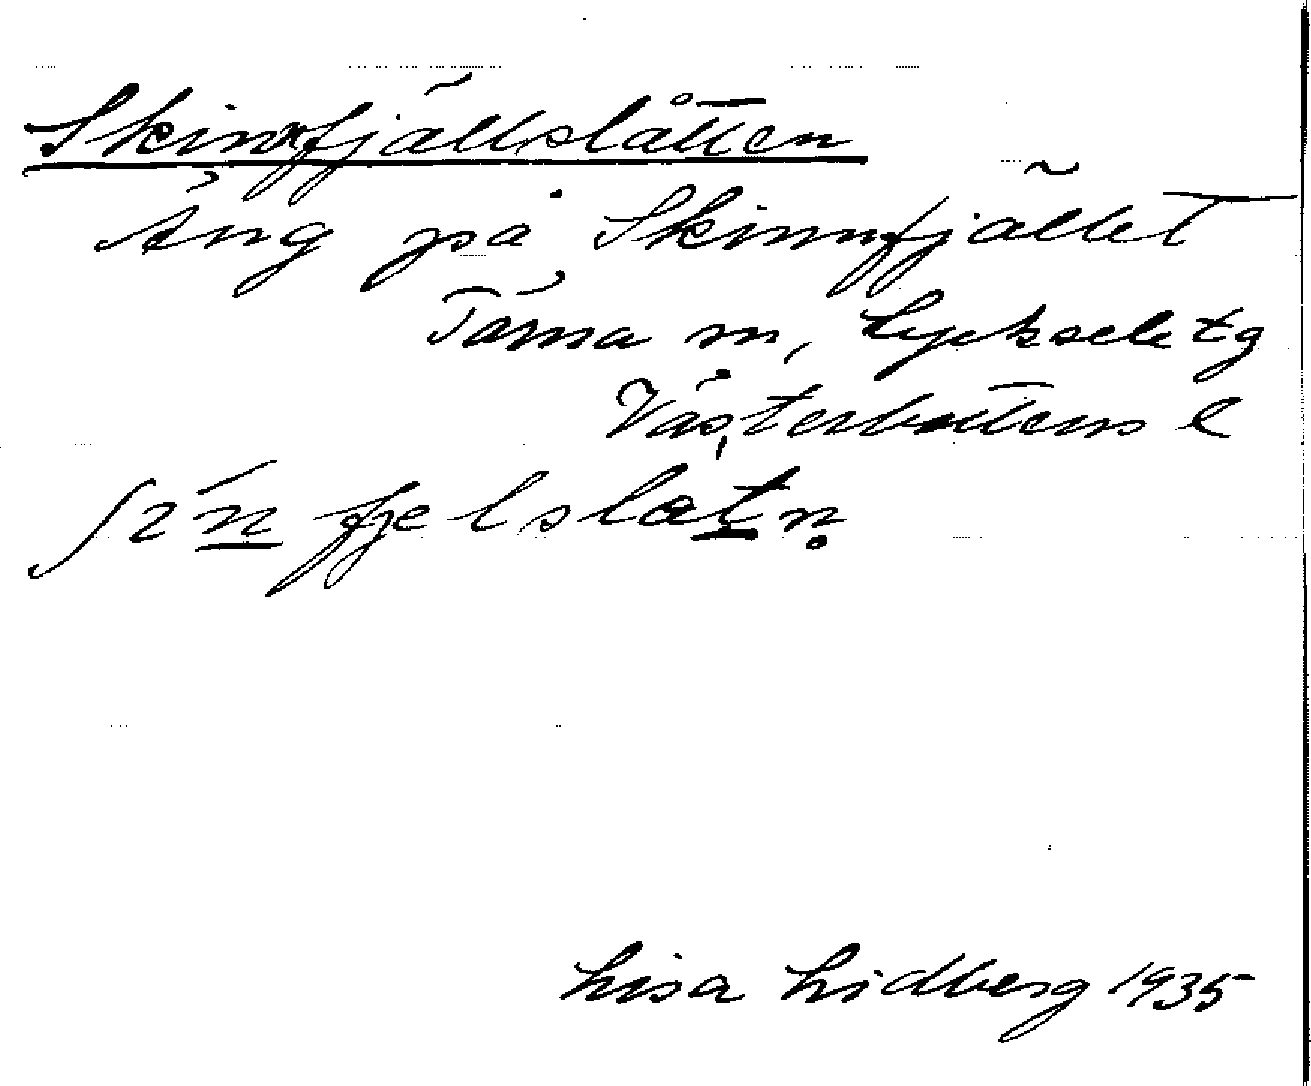 Skinnfjällslåtten
Äng på Skinnfjället
Tärna sn, Lycksele tg
Västerbottens l
ʃɪ́n̲fjelslat̲n̥
Lisa Lidberg 1935